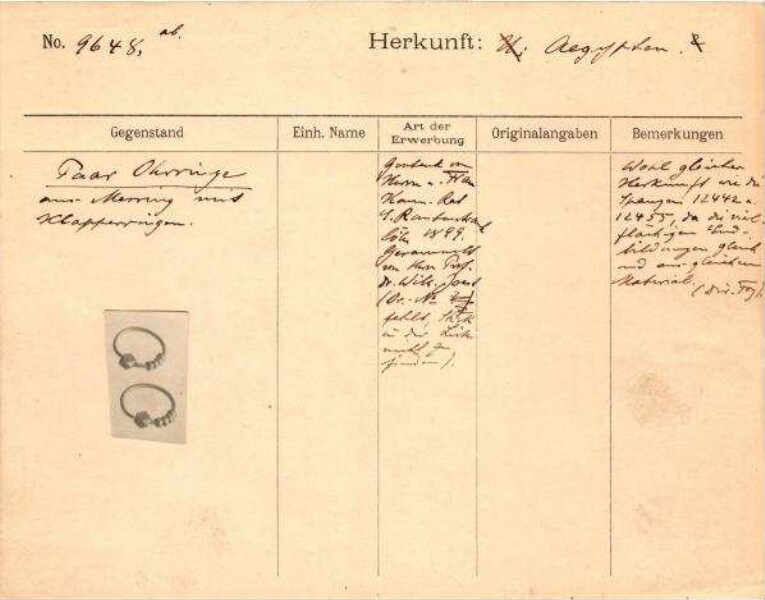 No. 9648, ab.
Herkunft: Aegypten.
Gegenstand
Einh. Name
Art der
Erwerbung
Originalangaben
Bemerkungen
Paar Ohrringe
aus Messing mit
Klapperringen.
Geschenk von
Herrn u. Frau
Komm. Rat
E. Rautenstrauch
Cöln 1899.
Gesammelt
von Herrn Prof.
Dr. Wilh. Joest
(Or.-No.
fehlt, Stück
in der Liste
nicht zu
finden).
Wohl gleicher
Herkunft wie die
Spangen 12442 u.
12455, da die viel-
flächigen End-
bildungen gleich
und aus gleichem
Material.
(Dir. Foy).